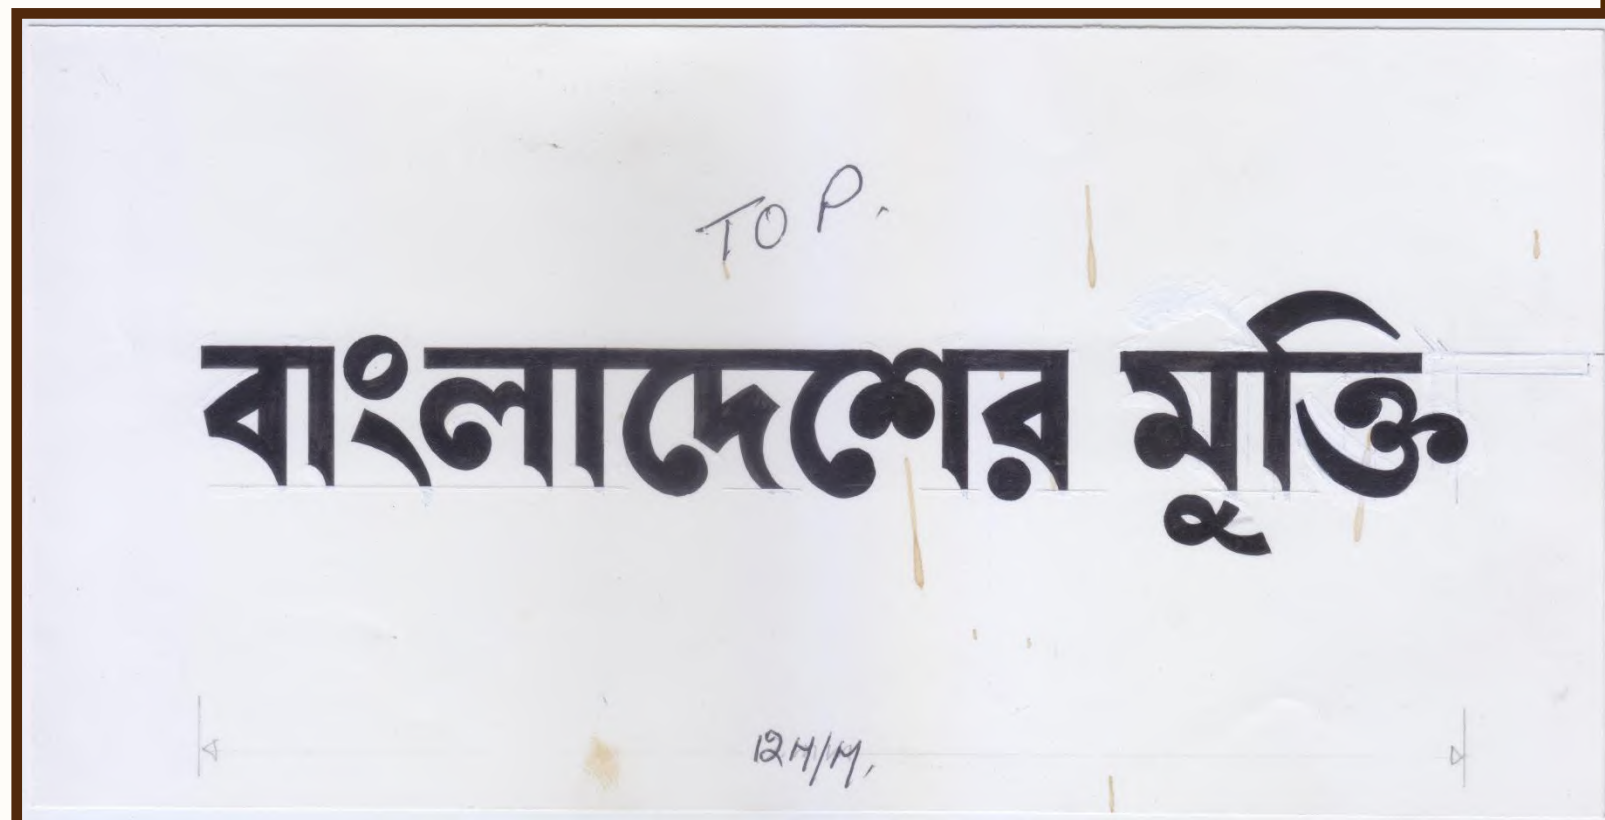 TOP.
বাংলাদেশের মুক্তি
12M/M.